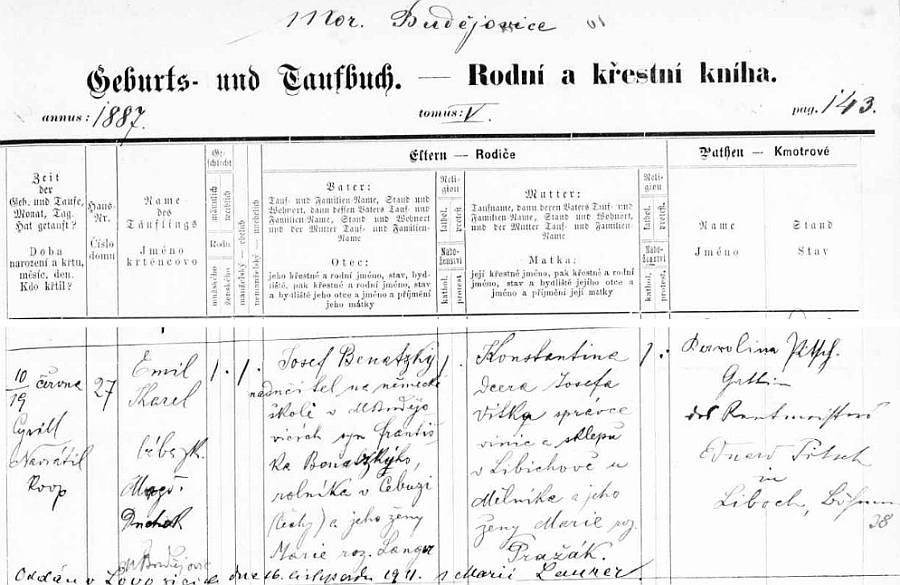 Mor. Budějovice
Geburts- und Taufbuch. — Rodní a křestní kniha.
annus: 1887. tomus: V. pag. 143.
Zeit
der
Geb. und Taufe,
Monat, Tag.
Hat getauft?
Doba
narození a křtu,
měsíc, den.
Kdo křtil?
Haus-
Nr.
Číslo
domu
Name
des
Täuflings
Jméno
křtěncovo
Ge-
schlecht
männlich
weiblich
Rodu
mužského
ženského
manželský – ehelich
nemanželský – unehelich
Eltern — Rodiče
Vater:
Tauf- und Familien-Name, Stand und
Wohnort, dann dessen Vaters Tauf- und
Familien-Name, Stand und Wohnort
und der Mutter Tauf- und Familien-
Name
Otec:
jeho křestné a rodní jméno, stav, byd-
liště, pak křestné a rodní jméno, stav
a bydliště jeho otce a jméno a příjmění
jeho mátky
Reli-
gion
kathol.
protest.
Nábo-
ženství
kathol.
protest.
Mutter:
Taufname, dann deren Vaters Tauf- und
Familien-Name, Stand und Wohnort,
und der Mutter Tauf- und Familien-
Name
Matka:
její křestné a rodní jméno, pak křestné a rodní
jméno, stav a bydliště jejího otce a
jméno a příjmění její mátky
Reli-
gion
kathol.
protest.
Nábo-
ženství
kathol.
protest.
Pathen — Kmotrové
Name
Jméno
Stand
Stav
10/19 června
Cyrill
Navrátil
Koop
27
Emil
Karel
1. 1.
Josef Benatzky
učitel na německé
škole v M Budějo
vicích syn Františ
ka Benatzkýho,
rolníka v Cebuzi
(Čechy) a jeho ženy
Marie roz. Langer
1.
Konstantina
dcera Josefa
Vitka správce
vinic a sklepů
v Libichově u
Mělníka a jeho
ženy Marie roz.
Pražák.
1.
Karolina Pitsch.
Gattin
des Rentmeisters
Eduard Pitsch
in
Liboch, Böhmen
38
M Budějovic
Oddán v Lovosicích dne 16. listopadu 1911. s Marií Laurer